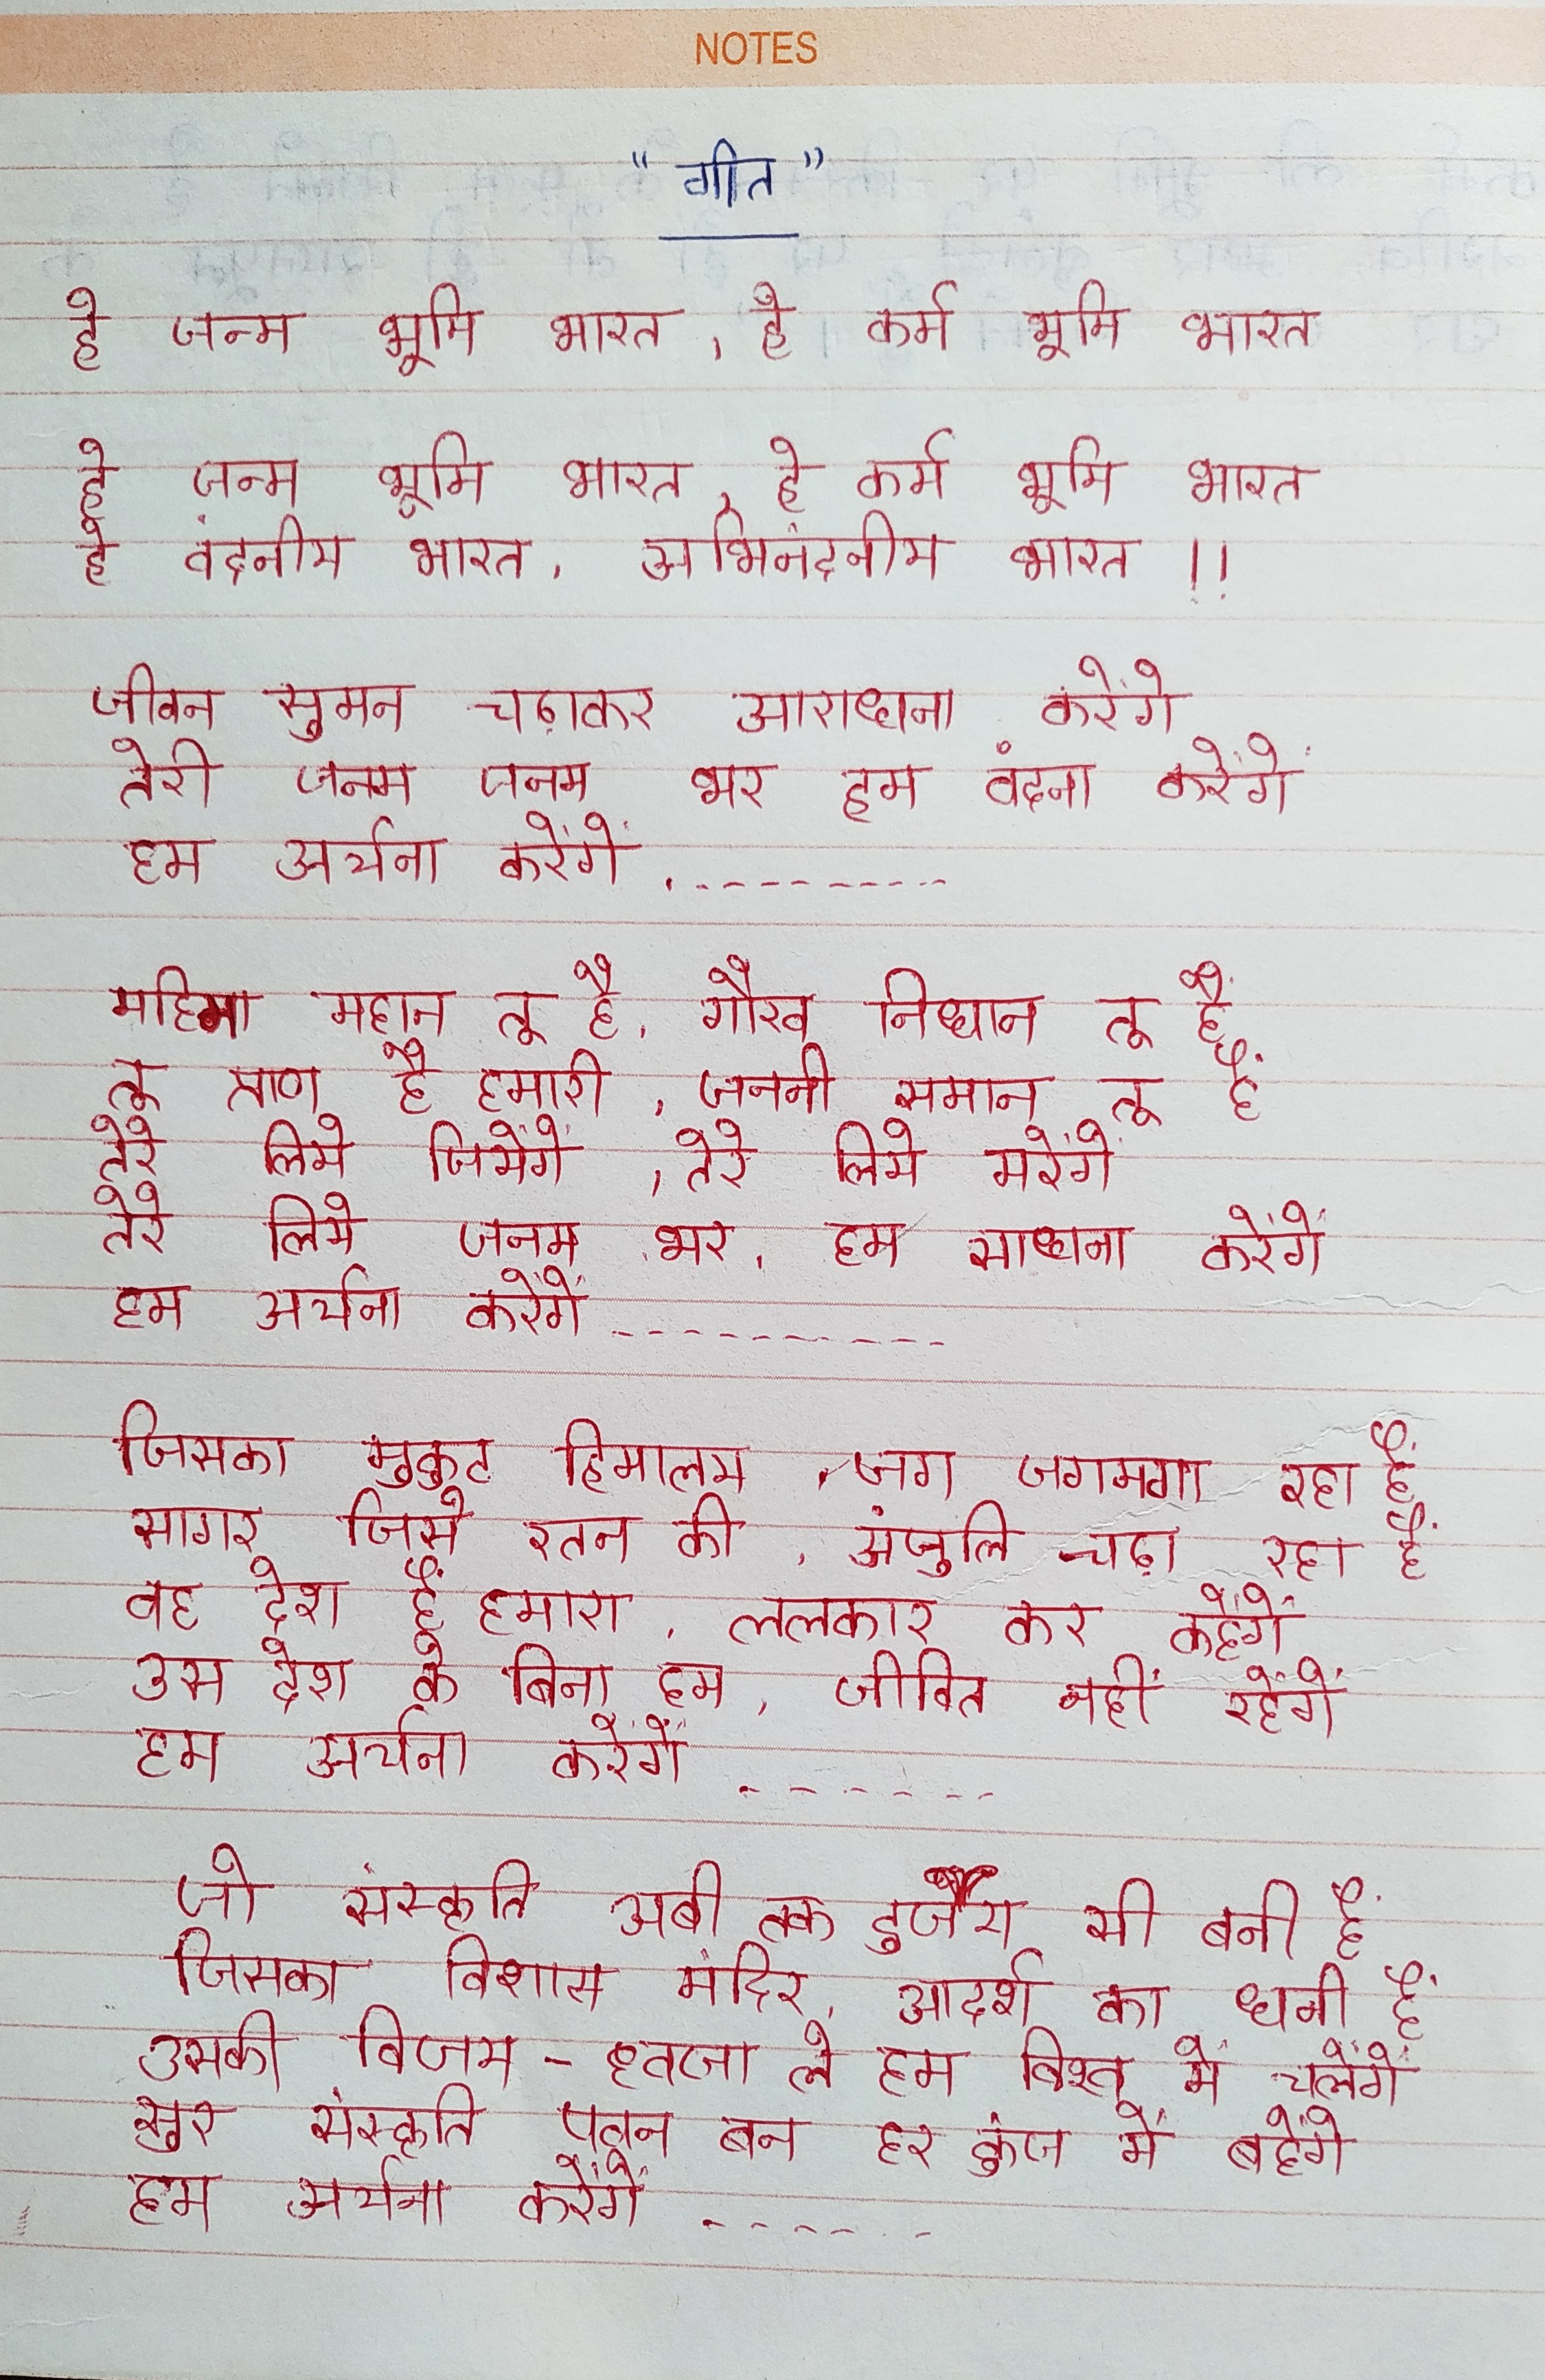 NOTES
“गीत”
हे जन्म भूमि भारत, हे कर्म भूमि भारत
हे जन्म भूमि भारत, हे कर्म भूमि भारत
हे वंदनीय भारत, अभिनंदनीय भारत !!
जीवन सुमन चढ़ाकर आराधना करेंगे
तेरी जनम जनम भर हम वंदना करेंगें
हम अर्चना करेंगें ..........
महिमा महान तू है, गौरव निधान तू हैं
तू प्राण है हमारी, जननी समान तू हैं
तेरे लिये जियेंगें, तेरे लिये मरेंगें
तेरे लिये जनम भर, हम साधना करेंगें
हम अर्चना करेंगें ----------
जिसका मुकुट हिमालय, जग जगमगा रहा हैं
सागर जिसे रतन की, अंजुलि चढ़ा रहा हैं
वह देश हैं हमारा, ललकार कर कहेंगें
उस देश के बिना हम, जीवित नहीं रहेंगें
हम अर्चना करेंगें .------
जो संस्कृति अबी तक दुर्जेय सी बनी हैं
जिसका विशास मंदिर, आदर्श का धनी हैं
उसकी विजय - ध्वजा ले हम विश्व में चलेंगें
सुर संस्कृति पवन बन हर कुंज में बहेंगे
हम अर्चना करेंगें .------